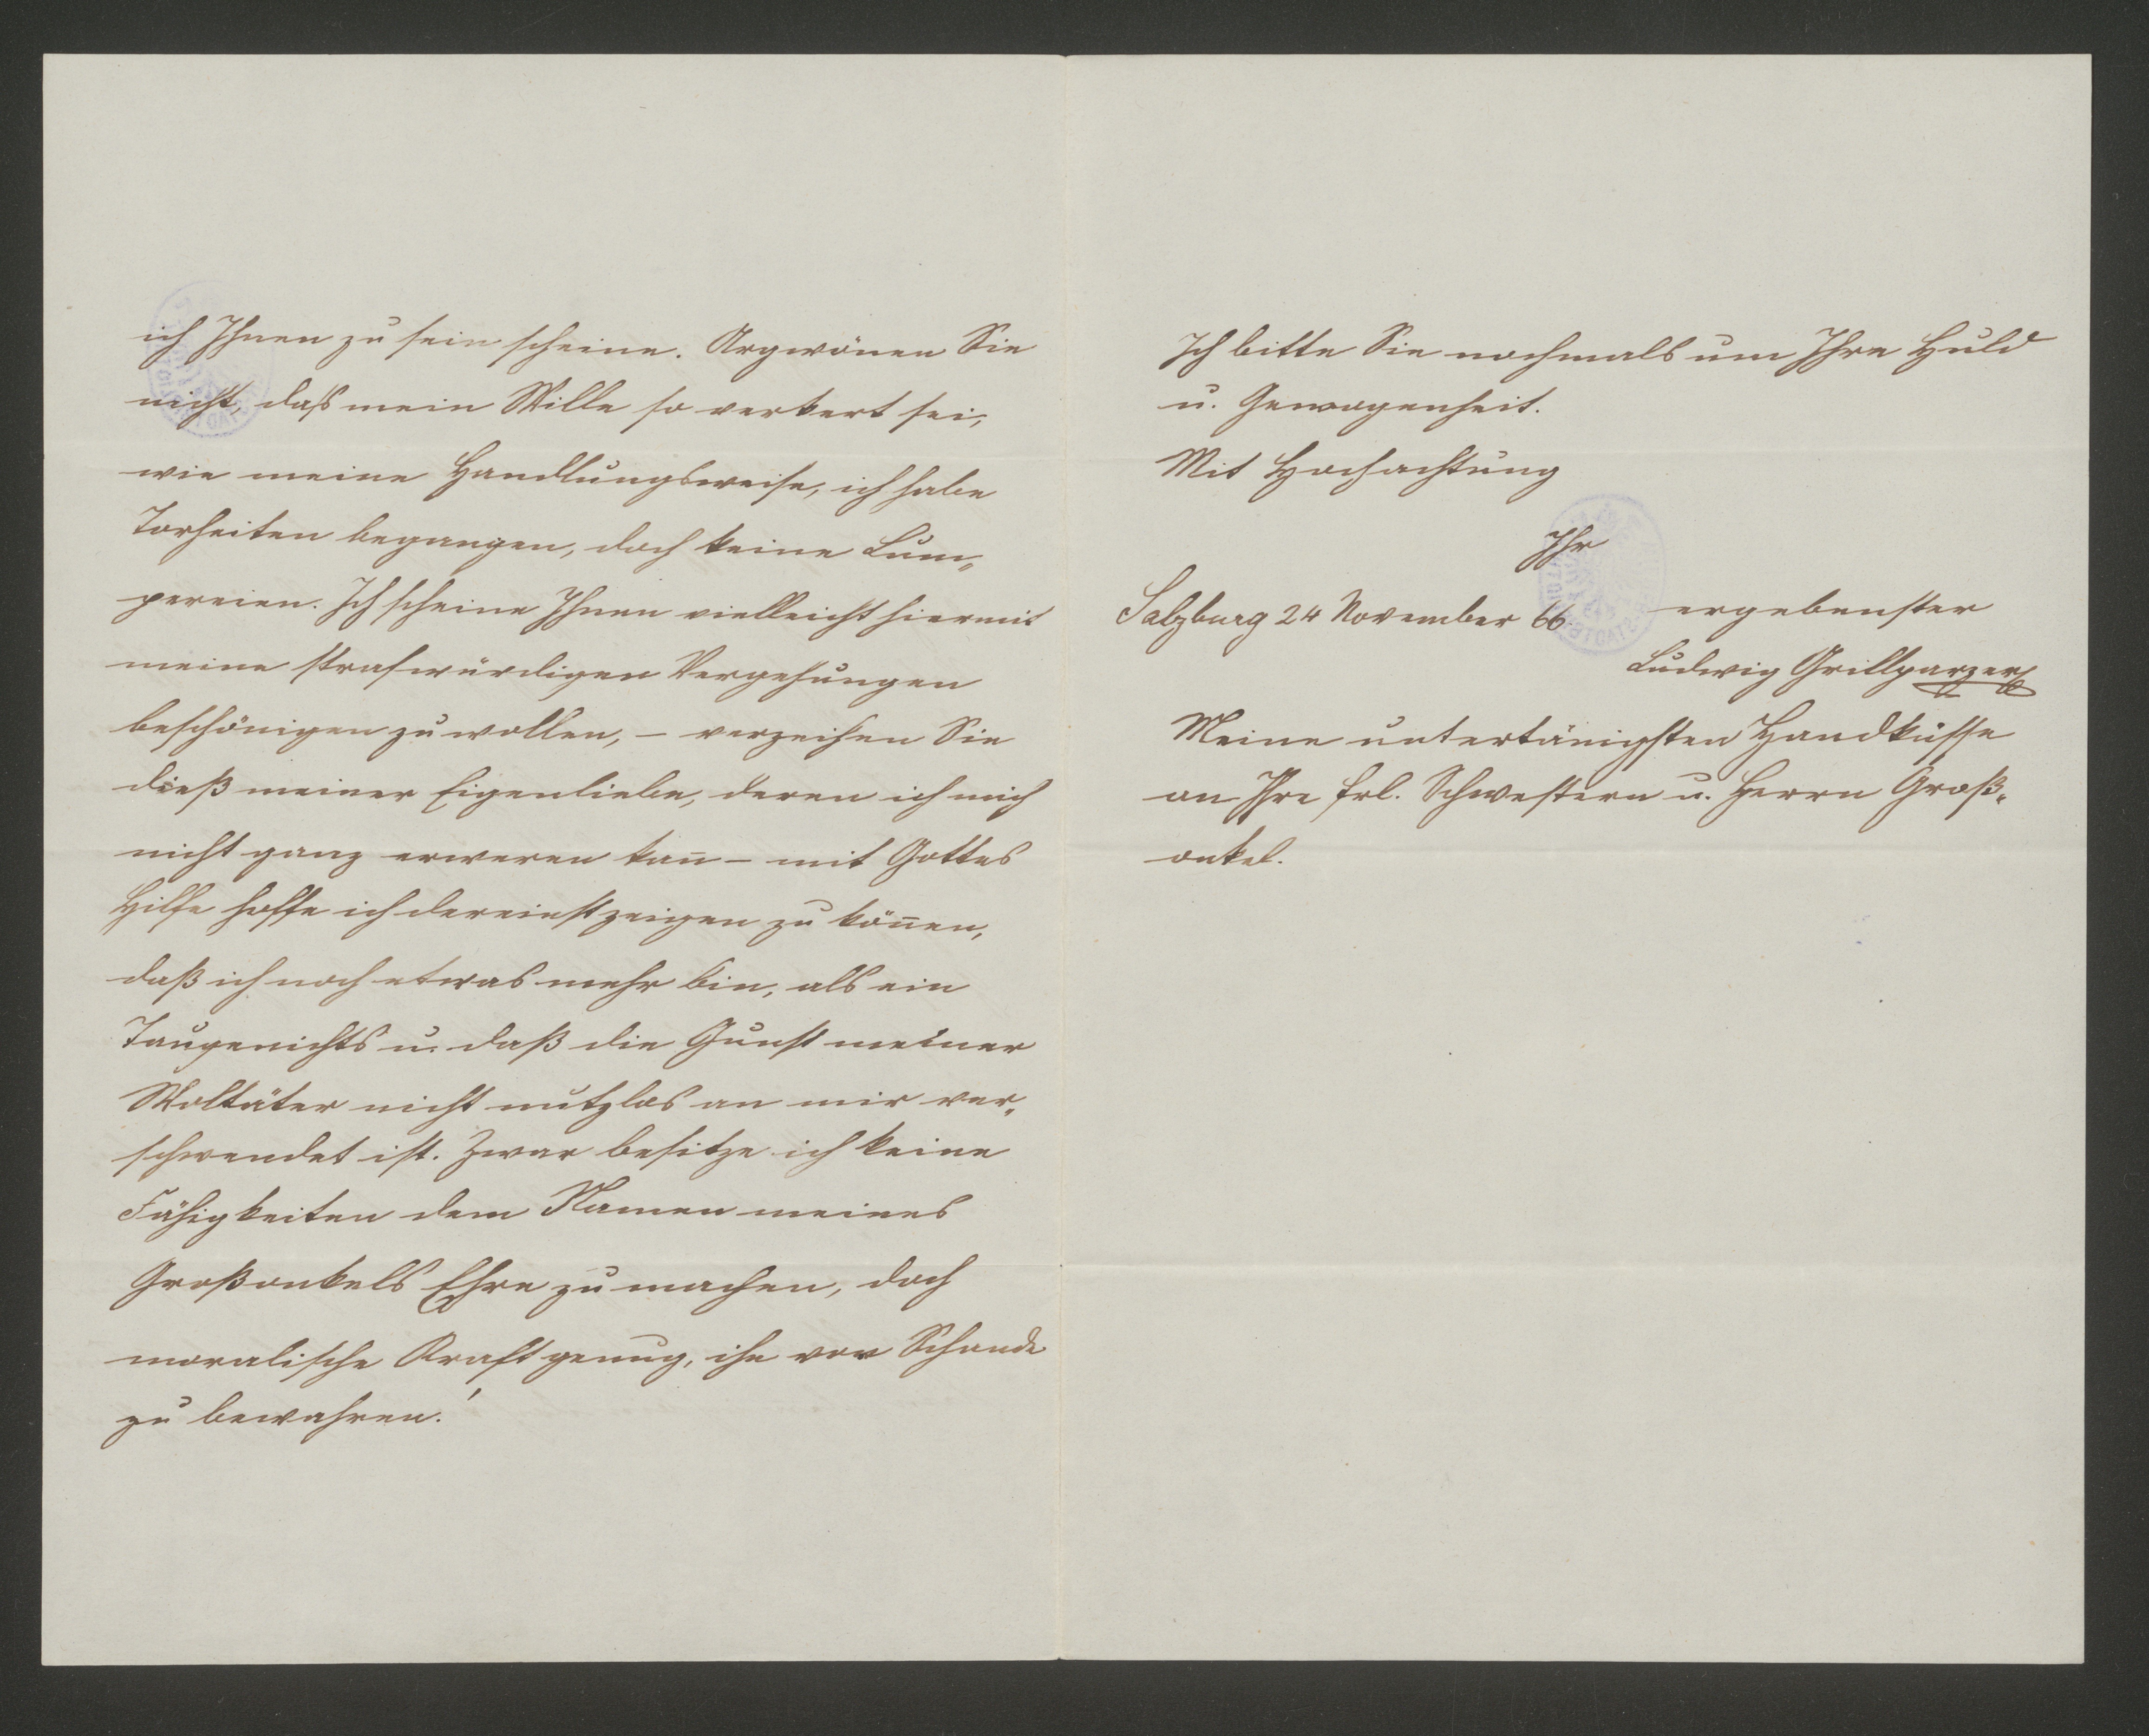 ich Ihnen zu sein scheine. Argwönen Sie
nicht, daß mein Wille so verkert sei,
wie meine Handlungsweise, ich habe
Torheiten begangen, doch keine Lum„
pereien. Ich scheine Ihnen vielleicht hiermit
meine strafwürdigen Vergehungen
beschönigen zu wollen, – verzeihen Sie
dieß meiner Eigenliebe, deren ich mich
nicht ganz erweren kan̄ – mit Gottes
Hilfe hoffe ich dereinst zeigen zu kön̄en,
daß ich noch etwas mehr bin, als ein
Taugenichts u. daß die Gunst meiner
Woltäter nicht nutzlos an mir ver„
schwendet ist. Zwar besitze ich keine
Fähigkeiten dem Namen meines
Großonkels Ehre zu machen, doch
moralische Kraft genug, ihn vor Schande
zu bewahren!
Ich bitte Sie nochmals um Ihre Huld
u. Gewogenheit.
Mit Hochachtung
Ihr
Salzburg 24 November 66. ergebenster
Ludwig Grillparzer
Meine untertänigsten Handküsse
an Ihre frl. Schwestern u. Herrn Groß„
onkel.